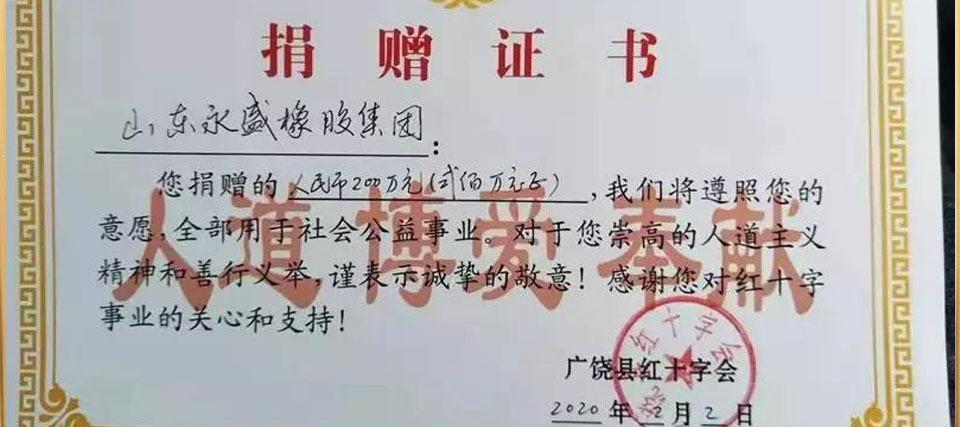 捐赠证书
山东永盛橡胶集团：
您捐赠的人民币200万元(贰佰万元正)，我们将遵照您的
意愿，全部用于社会公益事业。对于您崇高的人道主义
精神和善行义举，谨表示诚挚的敬意！感谢您对红十字
事业的关心和支持！
人道博爱奉献
广饶县红十字会
2020年2月2日